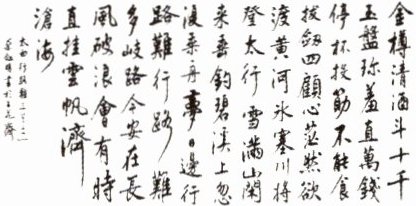 金樽清酒斗十千
玉盤珎羞直萬錢
停杯投筯不能食
拔劔四顧心茫然欲
渡黃河冰塞川將
登太行雪滿山閑
來垂釣碧溪上忽
復乘舟夢日邊行
路難行路難
多岐路今安在長
風破浪會有時
直挂雲帆濟
滄海
太白行路難三之一